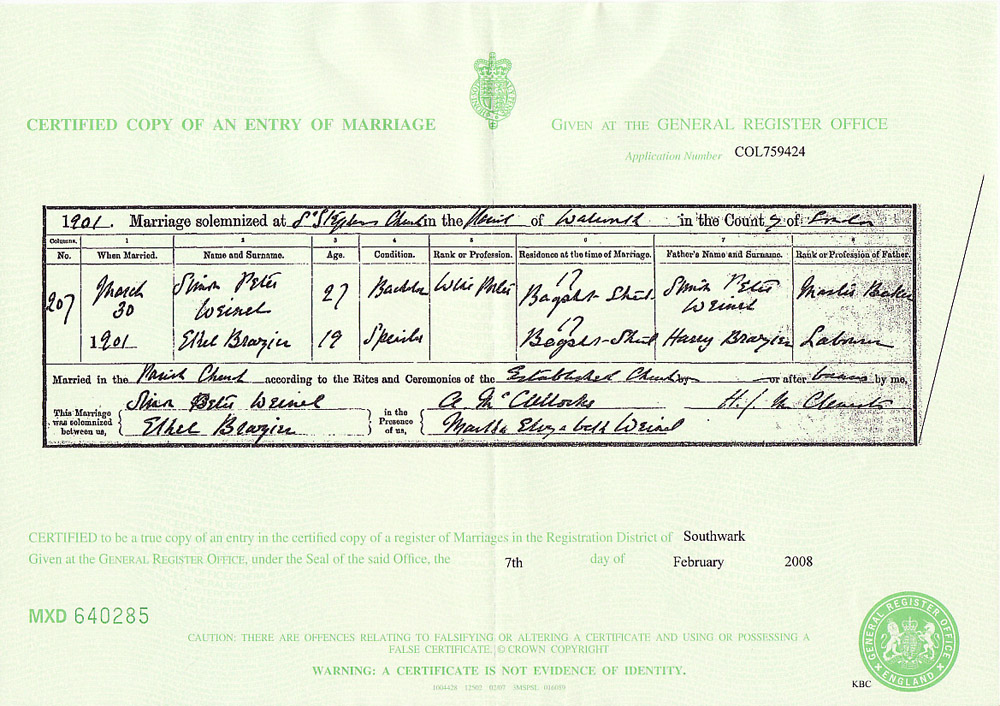 CERTIFIED COPY OF AN ENTRY OF MARRIAGE
GIVEN AT THE GENERAL REGISTER OFFICE
Application Number COL759424
1901. Marriage solemnized at St Stephens Church in the Parish of Walworth in the County of London
Columns. 1 2 3 4 5 6 7 8
No. When Married. Name and Surname. Age. Condition. Rank or Profession. Residence at the time of Marriage. Father's Name and Surname. Rank or Profession of Father.
207 March 30 1901
Simon Peter Weinel 27 Bachelor 17 Bagshot Street Simon Peter Weinel Master Baker
Ethel Brazier 19 Spinster 17 Bagshot Street Harry Brazier Labourer
Married in the Parish Church according to the Rites and Ceremonies of the Established Church by or after banns by me,
This Marriage was solemnized between us, Simon Peter Weinel Ethel Brazier
in the Presence of us, Martha Elizabeth Weinel
CERTIFIED to be a true copy of an entry in the certified copy of a register of Marriages in the Registration District of Southwark
Given at the GENERAL REGISTER OFFICE, under the Seal of the said Office, the 7th day of February 2008
MXD 640285
CAUTION: THERE ARE OFFENCES RELATING TO FALSIFYING OR ALTERING A CERTIFICATE AND USING OR POSSESSING A
FALSE CERTIFICATE. © CROWN COPYRIGHT
WARNING: A CERTIFICATE IS NOT EVIDENCE OF IDENTITY.
GENERAL REGISTER OFFICE
ENGLAND
KBC